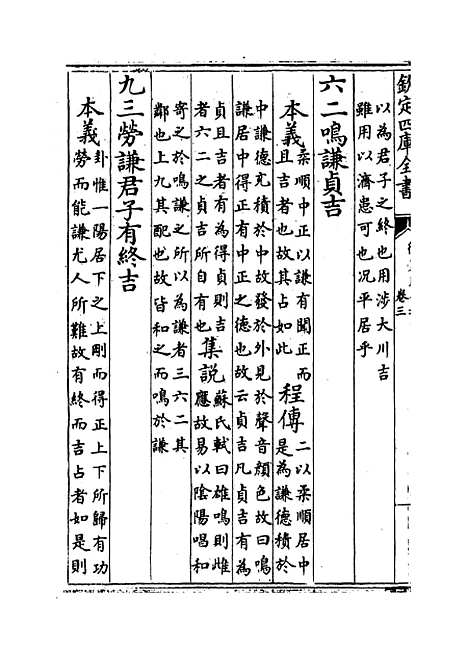 欽定四庫全書
卷三
以為君子之終也用涉大川吉
雖用以濟患可也况平居乎
六二鳴謙貞吉
本義
柔順中正以謙有聞正而
且吉者也故其占如此
程傳
二以柔順居中
是為謙德積於
中謙德充積於中故發於外見於聲音顔色故曰鳴
謙居中得正有中正之德也故云貞吉凡貞吉有為
貞且吉者有為得貞則吉
者六二之貞吉所自有也
集說
蘇氏軾曰雄鳴則雌
應故易以陰陽唱和
寄之於鳴謙之所以為謙者三六二其
鄰也上九其配也故皆和之而鳴於謙
九三勞謙君子有終吉
本義
卦惟一陽居下之上剛而得正上下所歸有功
勞而能謙尤人所難故有終而吉占者如是則